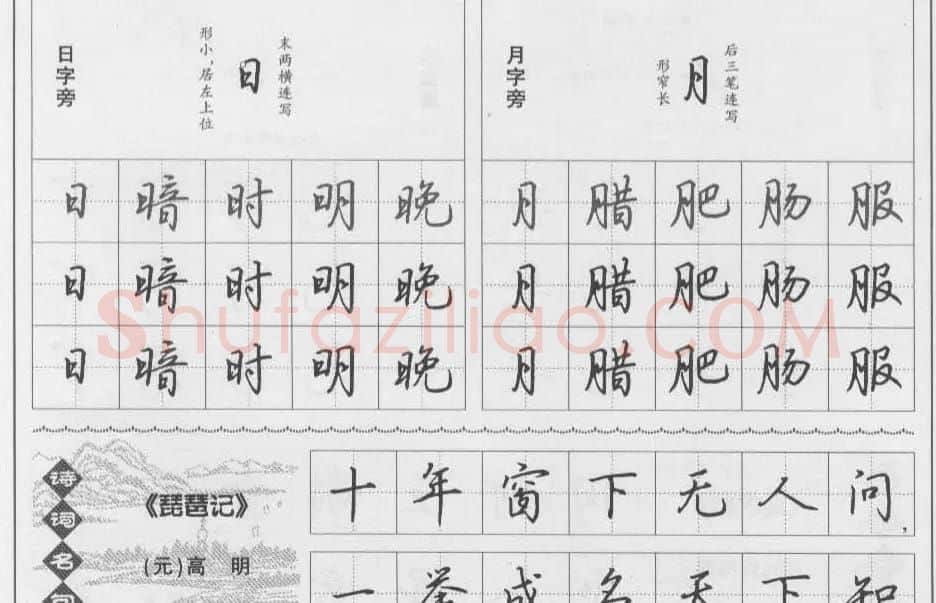 日字旁
形小，居左上位
日
末两横连写
月字旁
形窄长
月
后三笔连写
日 暗 时 明 晚
日 暗 时 明 晚
日 暗 时 明 晚
月 腊 肥 肠 服
月 腊 肥 肠 服
月 腊 肥 肠 服
Shufaziliao.COM
诗词名句
《琵琶记》
(元)高 明
十年窗下无人问，
一举成名天下知